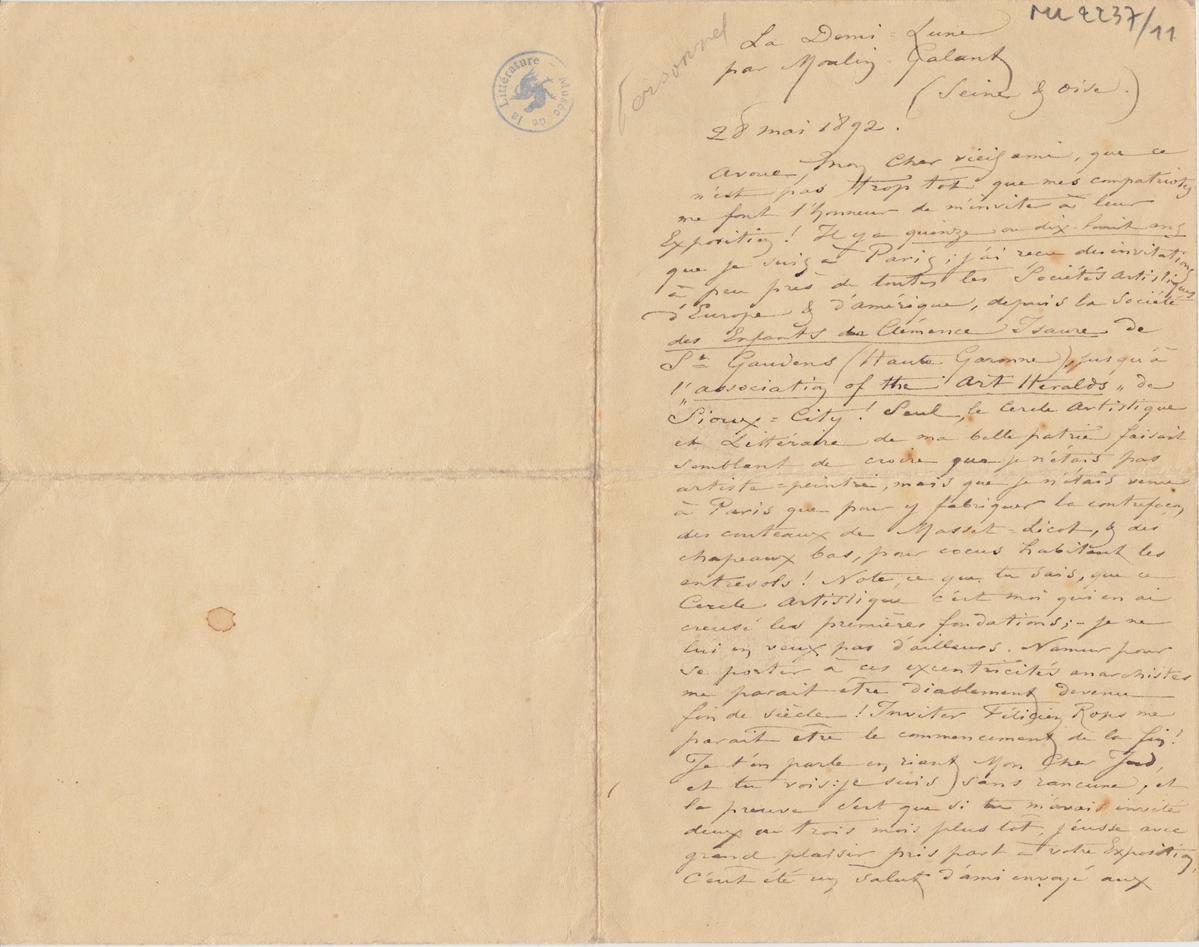 Musée de la Littérature
ML 2237/11
Personnel
La Demi-Lune
par Moulin-Galant
(Seine & Oise.)
28 mai 1892.
Avoue, Mon Cher vieil ami, que ce
n'est pas trop tôt que mes compatriotes
me font l'honneur de m'inviter à leur
Exposition ! Il y a quinze ou dix-huit ans
que je suis à Paris ; j'ai reçu des invitations
à peu près de toutes les Sociétés artistiques
d'Europe & d'amérique, depuis la Société
des Enfants de Clémence Isaure de
St Gaudens (Haute Garonne) jusqu'à
l'"association of the Art Heralds" de
Sioux=City ! Seul, le Cercle Artistique
et Littéraire de ma belle patrie faisait
semblant de croire que je n'étais pas
artiste=peintre, mais que je n'étais venu
à Paris que pour y fabriquer la contrefaçon
des couteaux de Masset=dicot, & des
chapeaux bas, pour cocus habitant les
entresols ! Note, ce que tu sais, que ce
Cercle Artistique c'est moi qui en ai
creusé les premières fondations ; - je ne
lui en veux pas d'ailleurs. Namur pour
se porter à ces excentricités anarchistes
me parait être diablement devenu
fin de siècle ! Inviter Félicien Rops me
parait être le commencement de la fin !
Je t'en parle en riant Mon Cher
et tu vois : je suis sans rancune, et
la preuve c'est que si tu m'avais invité
deux ou trois mois plus tôt, j'eusse avec
grand plaisir pris part à votre Exposition,
C'eut été un salut d'ami envoyé aux